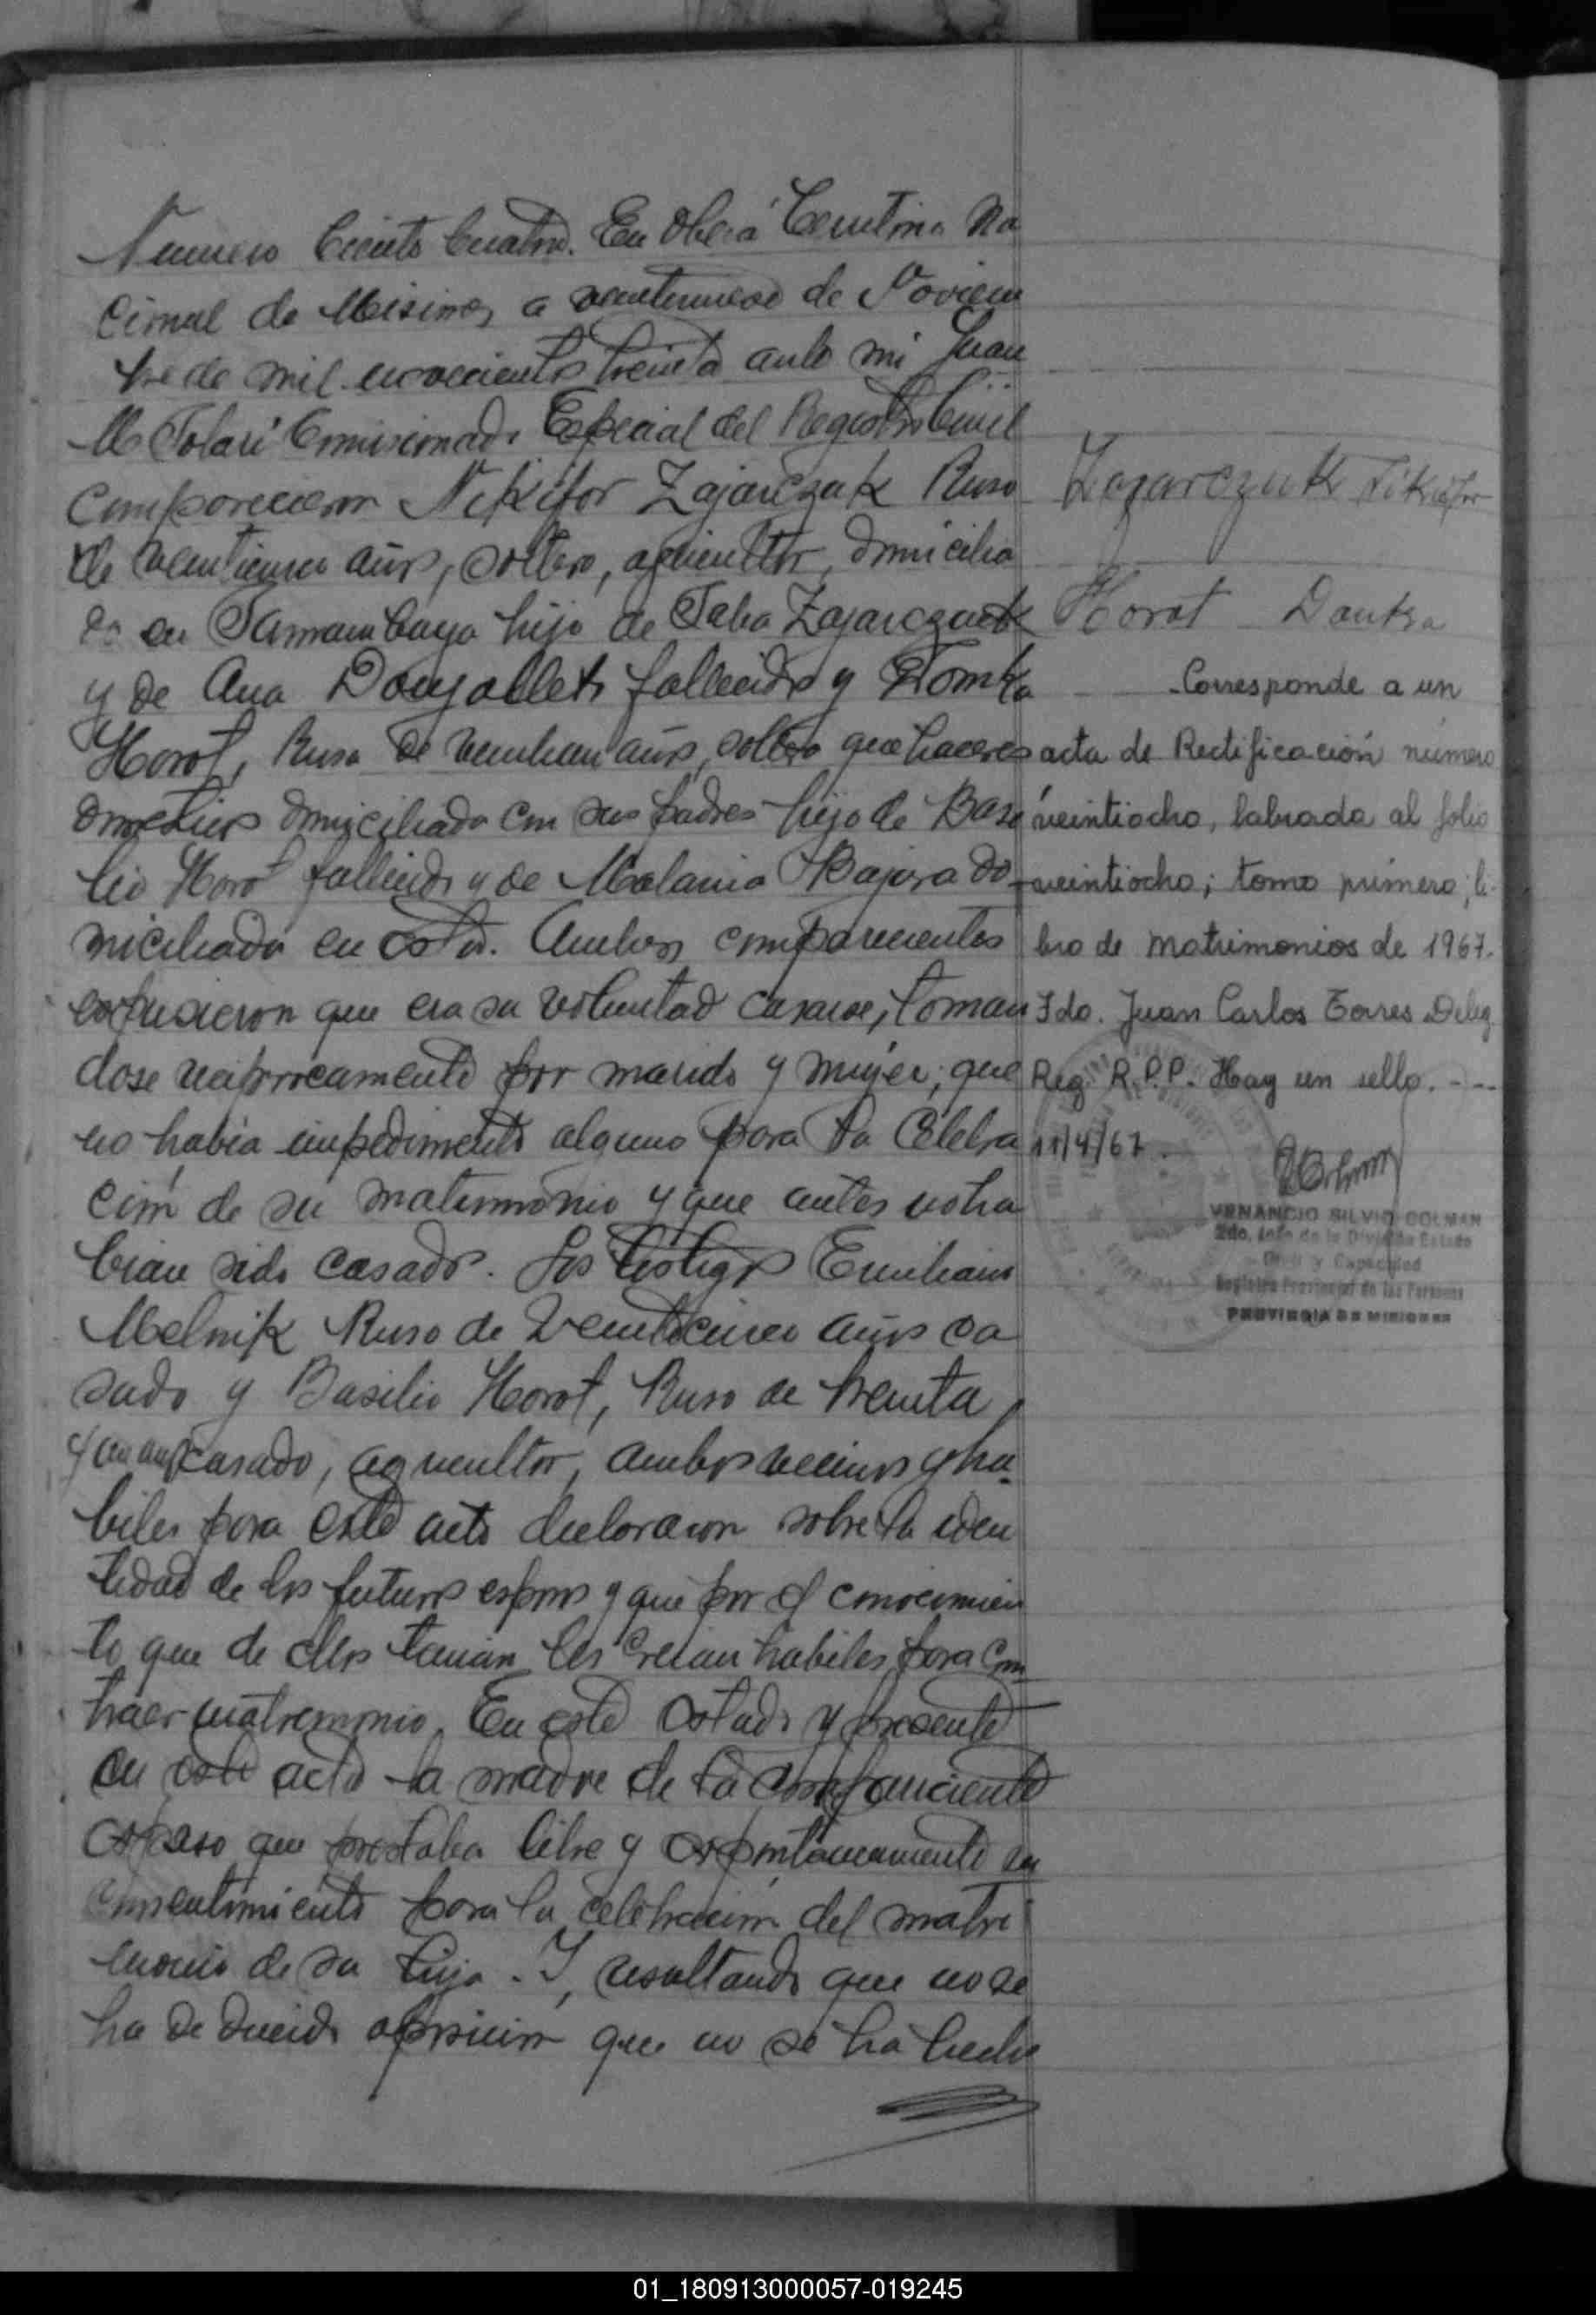 Numero Ciento Cuatro. En Oberá Territorio Na
cional de Misiones a veintinueve de Noviem
bre de mil novecientos treinta ante mi Juan
M Tolari Comisionado Especial del Registro Civil
comparecieron Nikifor Zajarczuk Ruso
de años, soltero, agricultor, domicilia
do en Tamanbaya hijo de Zajarczuk
y de Ana fallecidos y
Horot, Rusa de años, soltera quehaceres
domesticos domiciliada con sus padres hija de Basi
lio Horot fallecido y de Melania Bajura do
miciliada en esta. Ambos comparecientes
expusieron que era su voluntad casarse, toman
dose reciprocamente por marido y mujer; que
no habia impedimento alguno para la celebra
ción de su matrimonio y que antes no ha
bian sido casados. Los testigos Emiliano
Melnik Ruso de veinticinco años ca
sado y Basilio Horot, Ruso de treinta
y un años casado, agricultor, ambos vecinos y ha
biles para este acto declararon sobre la iden
tidad de los futuros esposos y que por el conocimien
to que de ellos tenian los creian habiles para con
traer matrimonio. En este estado y presente
en este acto la madre de la compareciente
expuso que prestaba libre y espontaneamente su
consentimiento para la celebracion del matri
monio de su hija. Y, resultando que no se
ha deducido oposicion que no se ha hecho
Zajarczuk Nikifor
Horot Domka
Corresponde a un
acta de Rectificación número
veintiocho, labrada al folio
veintiocho; tomo primero; li-
bro de matrimonios de 1967.
Fdo. Juan Carlos Torres Deleg.
Reg. R.P.P. Hay un sello. - - -
11/4/67.
VENANCIO SILVIO COLMAN
2do. Jefe de la División Estado
Civil y Capacidad
Registro Provincial de las Personas
PROVINCIA DE MISIONES
01_180913000057-019245